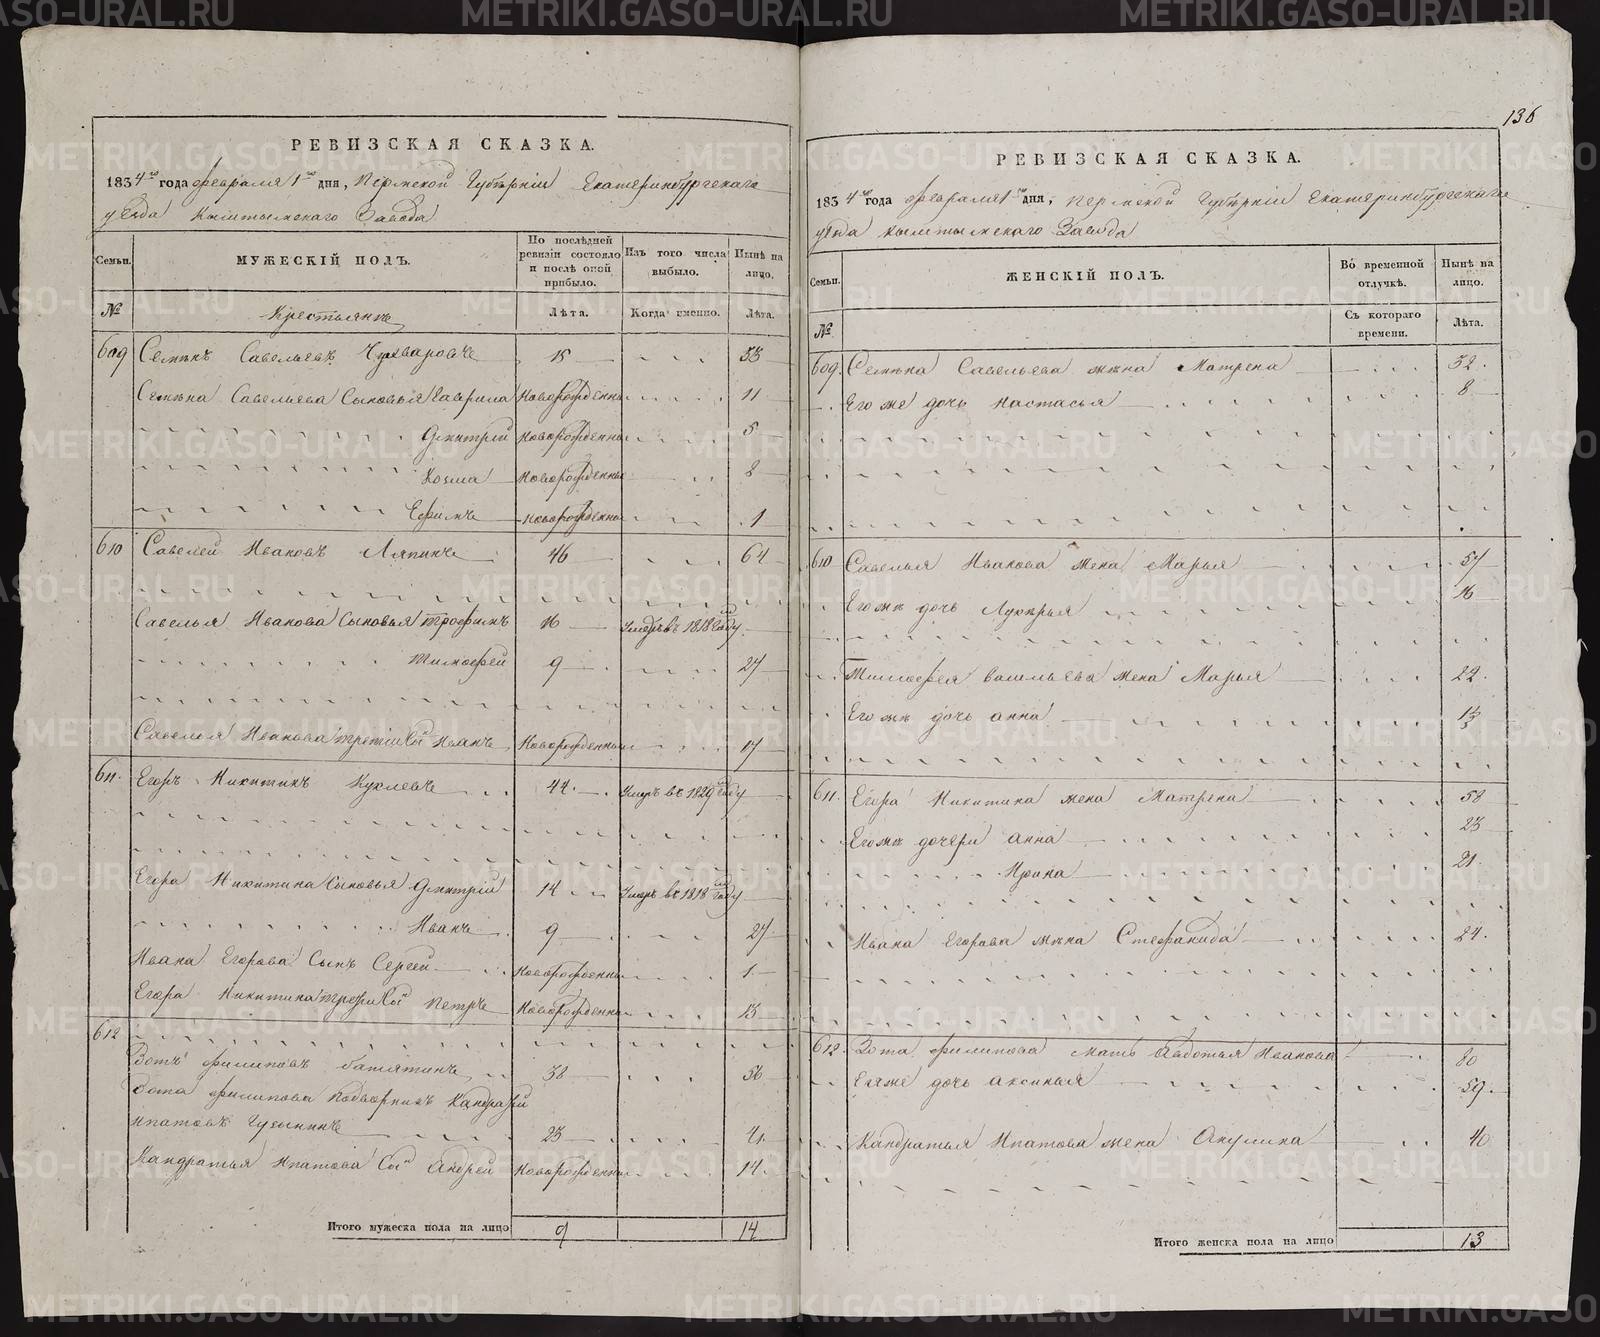 РЕВИЗСКАЯ СКАЗКА.
1834го года февраля 1го дня, Пермской Губернiи Екатеринбургскаго
уезда Кыштымскаго Завода
Семьи.
МУЖЕСКIЙ ПОЛЪ.
По послѣдней ревизiи состояло и послѣ оной прибыло.
Изъ того числа выбыло.
Нынѣ на лицо.
№
Крестьянъ
Лѣта.
Когда именно.
Лѣта.
609 Семенъ Савельевъ 15 33
Семена Савельева Сыновья Гаврила Новорожденны 11
Дмитрiй Новорожденны 5
Козма Новорожденны 2
Ефимъ Новорожденны 1
610 Савелей Ивановъ Ляпинъ 46 64
Савелья Иванова Сыновья Трофимъ 16 Умеръ въ 1818м году
Тимофей 9 27
Савелья Иванова третiй Сынъ Иванъ Новорожденны 17
611. Егоръ Никитинъ Куклевъ 44. Умеръ въ 1829м году
Егора Никитина Сыновья Дмитрiй 14 Умеръ въ 1818м году
Иванъ 9 27
Ивана Егорова Сынъ Сергей Новорожденны 1
Егора Никитина третiй Сынъ Петръ Новорожденны 13
612
Зотъ Филиповъ Батятинъ 38 56
Зота Филипова Подворникъ Кандратiй
Ипатовъ Гусынинъ 23 41
Кандратья Ипатова Сынъ Андрей Новорожденны 14.
Итого мужеска пола на лицо 9 14
136
РЕВИЗСКАЯ СКАЗКА.
1834го года февраля 1го дня, Пермской Губернiи Екатеринбургскаго
уезда Кыштымскаго Завода
Семьи.
ЖЕНСКIЙ ПОЛЪ.
Во временной отлучкѣ.
Нынѣ на лицо.
№
Съ котораго времени.
Лѣта.
609. Семена Савельева жена Матрена 32.
Его же дочь Настасья 8
610 Савелья Иванова жена Марья 57
Его же дочь Лукерья 16
Тимофея Савельева жена Марья 22.
Его же дочь Анна
611. Егора Никитина жена Матрена 58
Его же дочери Анна 23
Ирина 21.
Ивана Егорова жена Стефанида 24.
612. Зота Филипова мать Авдотья Иванова 80
Ея же дочь Аксинья 59.
Кандратья Ипатова жена Акулина 40
Итого женска пола на лицо 13